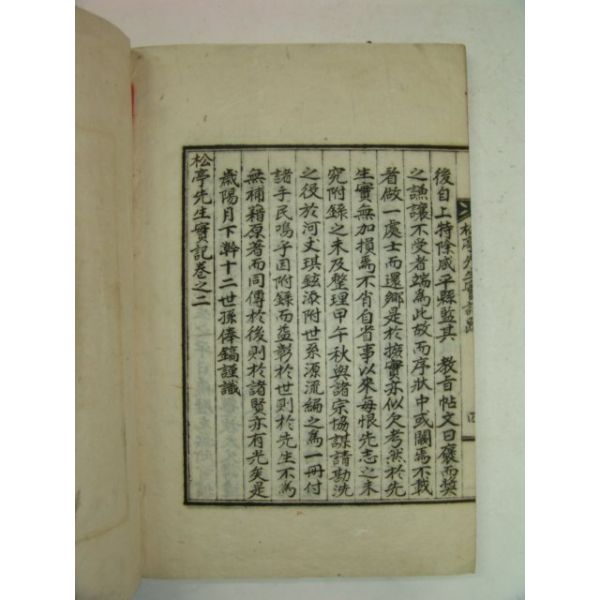 後自上特除咸平縣監其 教旨帖文曰褒而奬
之謙讓不受者端爲此故而序狀中或闕焉不載
者做一處士而還鄕是於摭實亦似欠考然於先
生實無加損焉不肖自省事以來每恨先志之未
究附錄之未及整理甲午秋與諸宗協謀請勘洗
之役於河丈琪鉉添附世系源流編之爲一冊付
諸手民嗚乎因附錄而益彰於世則於先生不爲
無補藉原著而同傳於後則於諸賢亦有光矣是
歲陽月下澣十二世孫俸鎬謹識
松亭先生實記卷之二